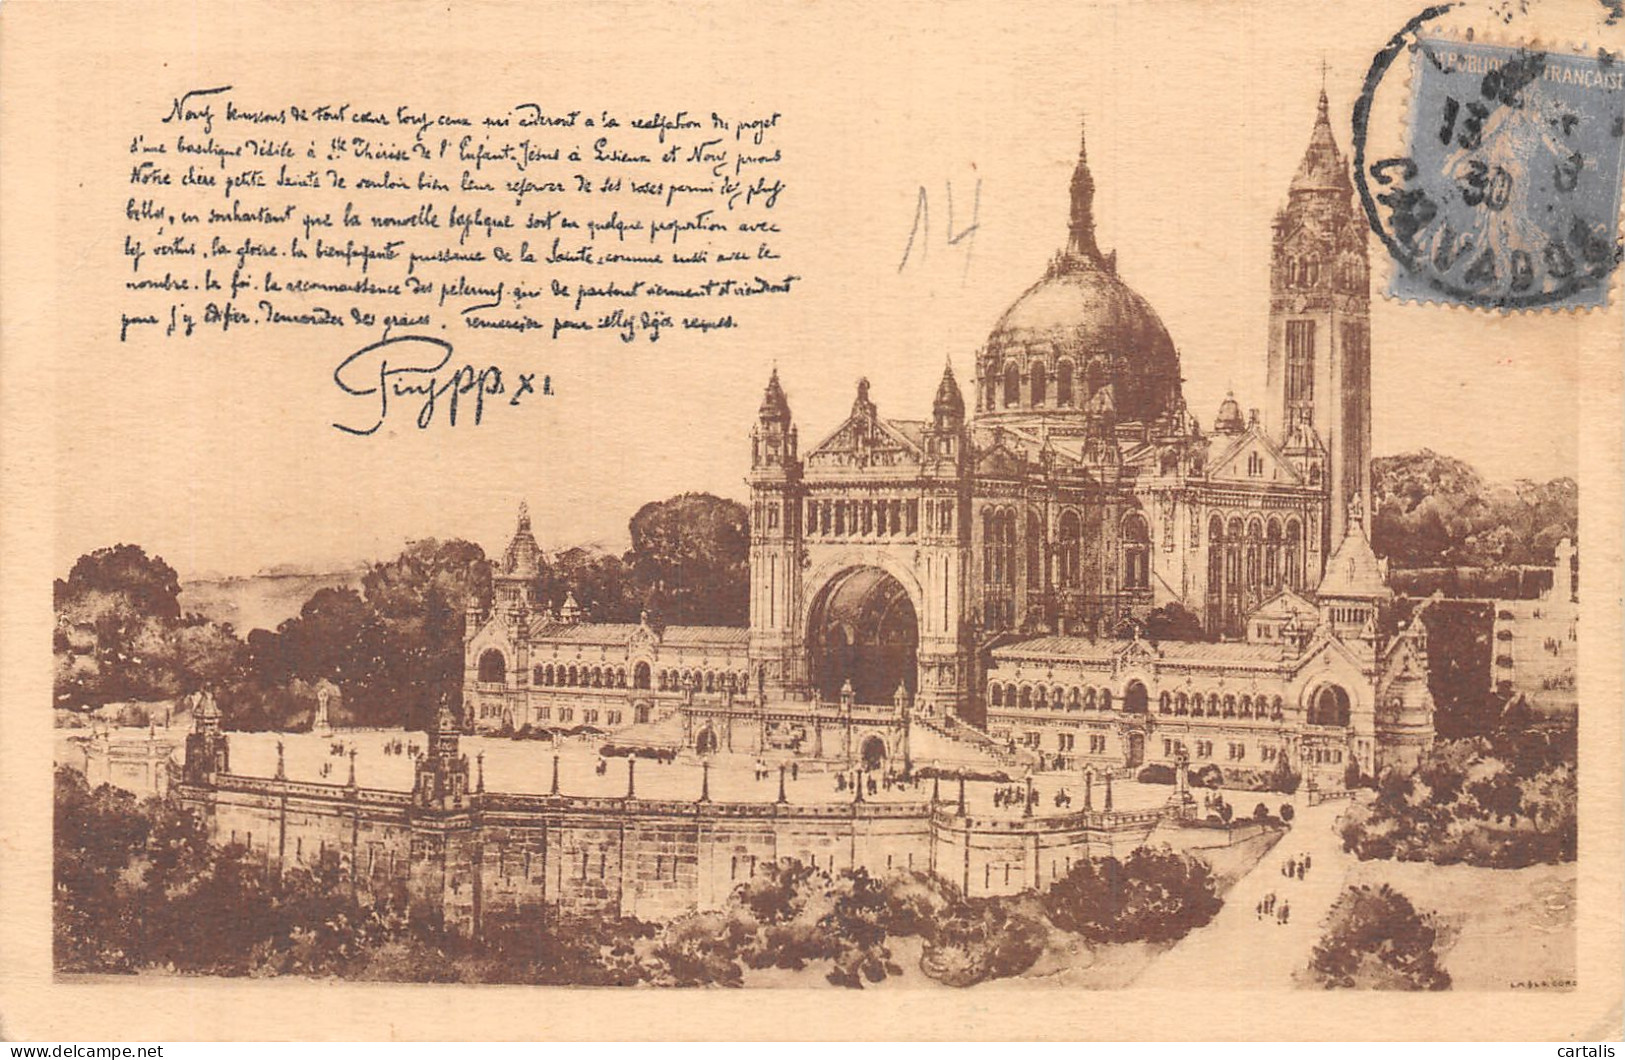 Nous bénissons de tout cœur tous ceux qui aideront a la réalisation du projet
d'une basilique dédiée à Ste Thérèse de l'Enfant-Jésus à Lisieux et Nous prions
Notre chère petite Sainte de vouloir bien leur réserver de ses roses parmi les plus
belles, en souhaitant que la nouvelle basilique soit en quelque proportion avec
les vertus, la gloire, la bienfaisante puissance de la Sainte, comme aussi avec le
nombre, la foi, la reconnaissance des pélerins qui de partout viennent et viendront
pour s'y édifier, demander des grâces, remercier pour celles déjà reçues.
Pius PP. XI.
14
REPUBLIQUE FRANÇAISE
13
30
CALVADOS
delcampe.net
cartalis